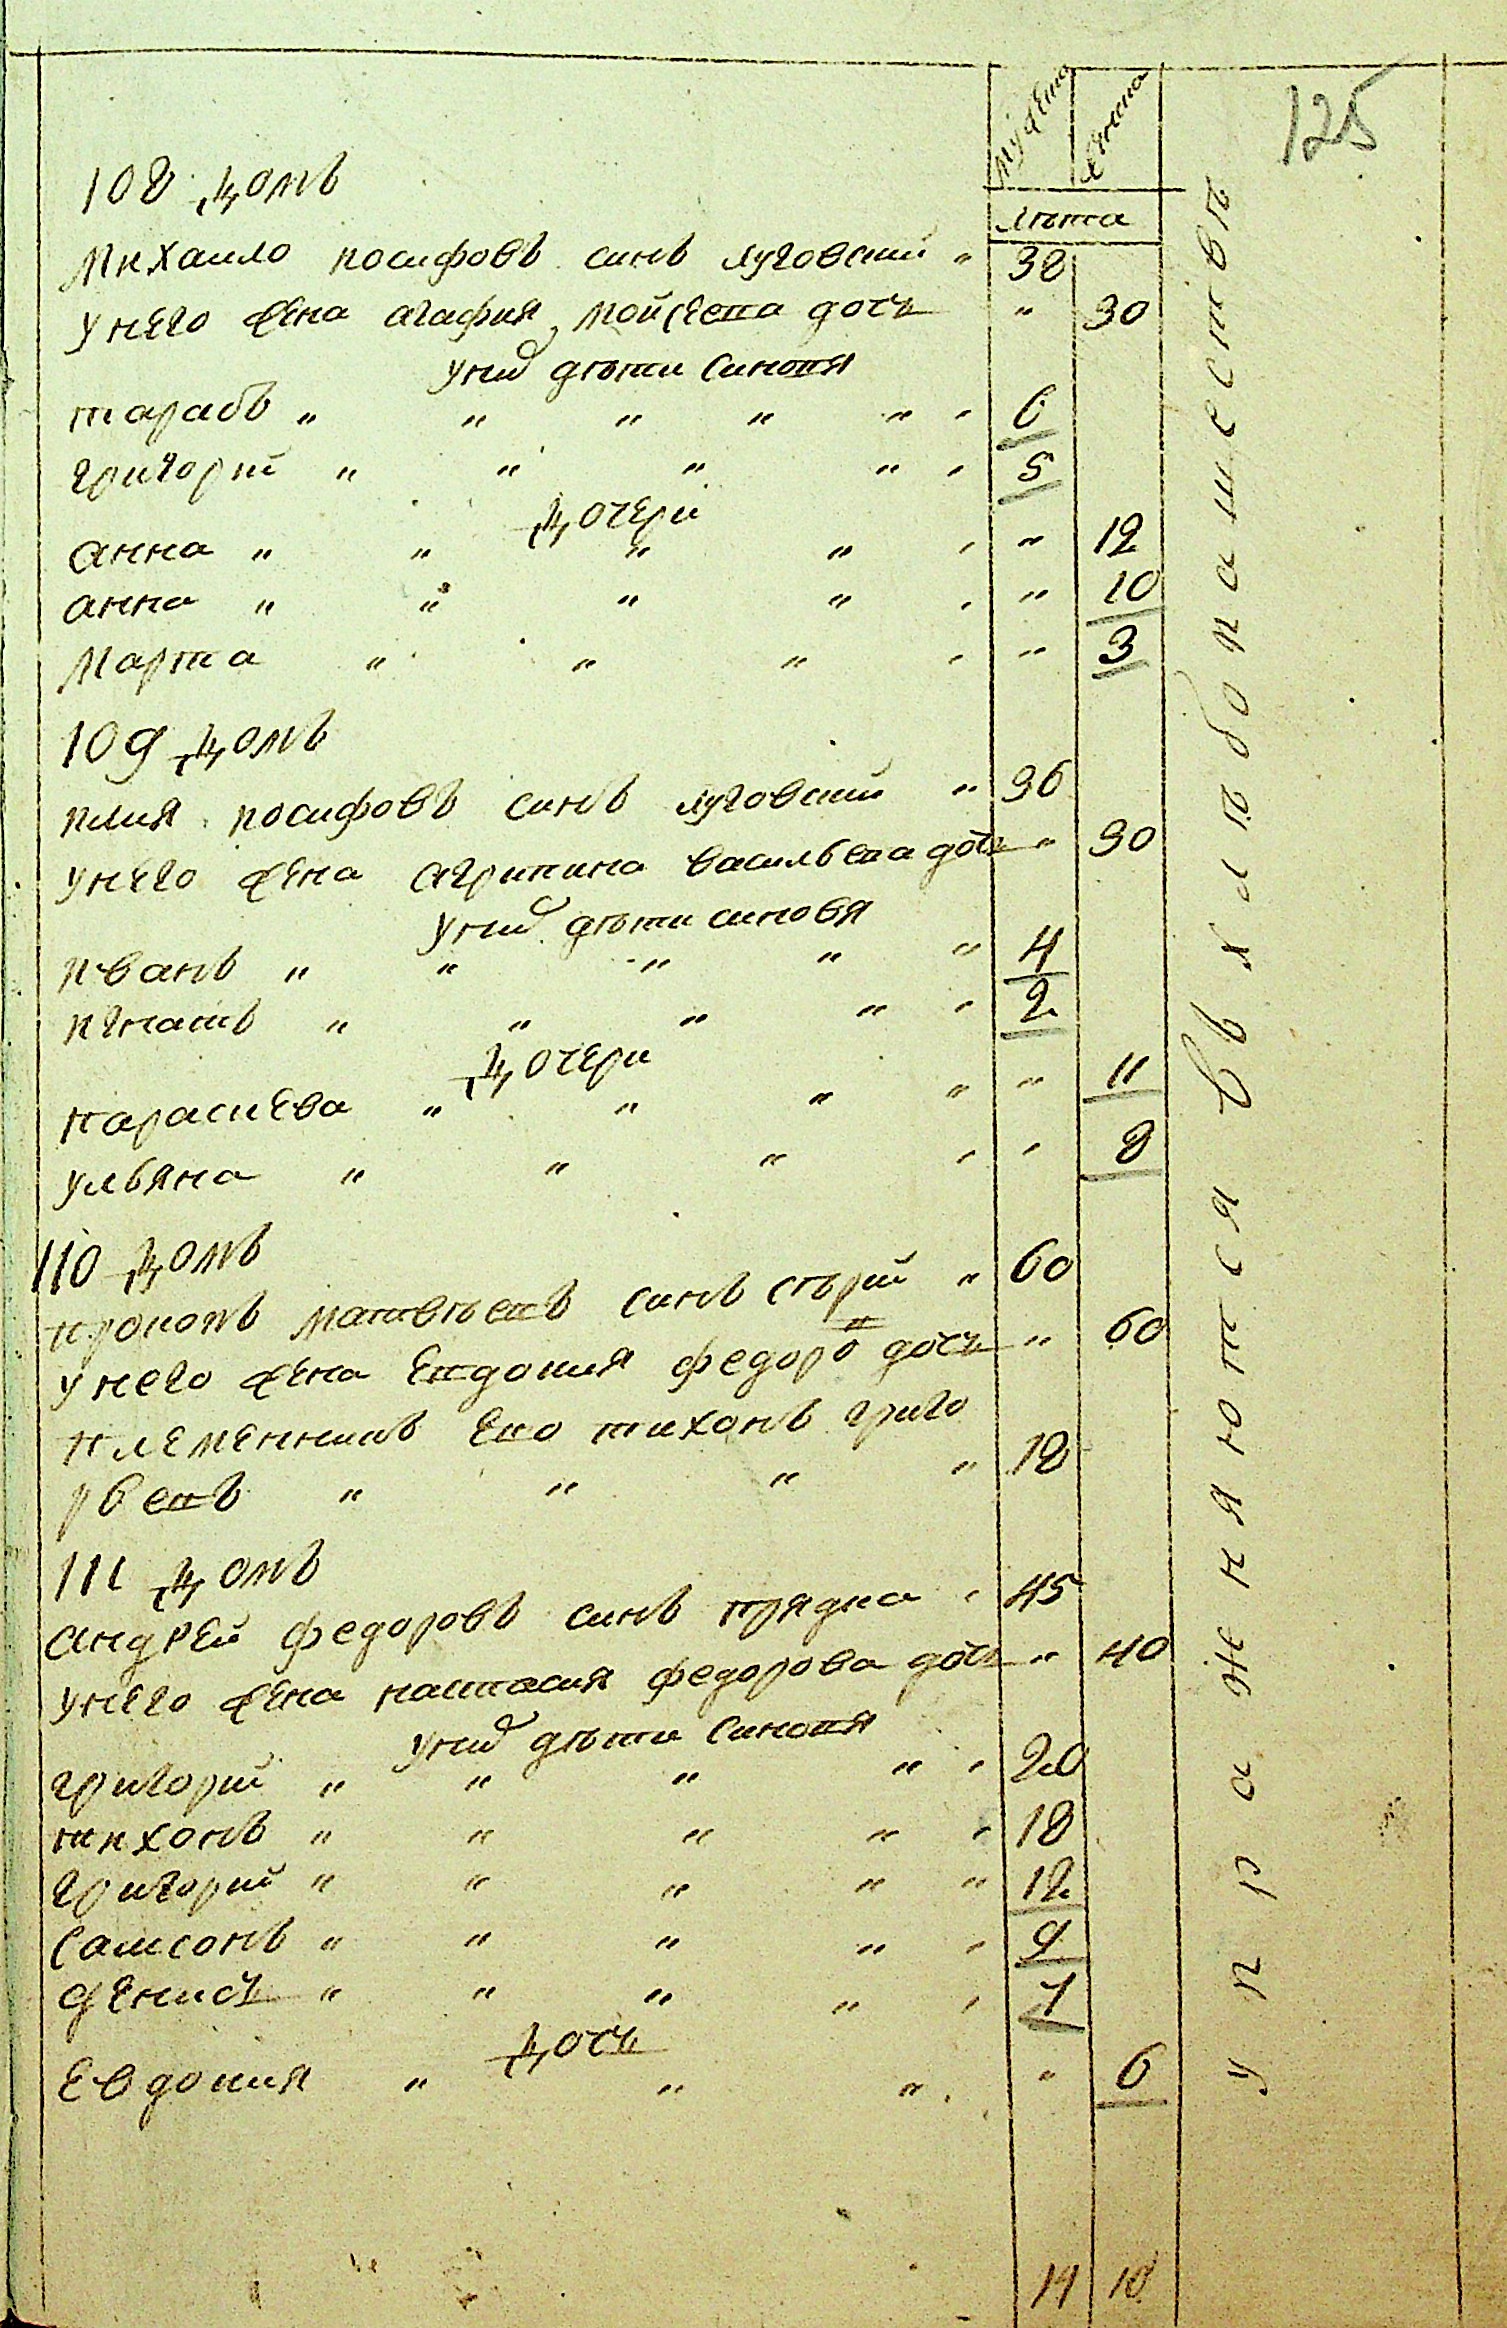 125
мужеска женска
лѣта
108 Домъ
Михаило иосифовъ синъ луговский " 38
У него жена агафия мойсеева дочъ " 30
У них дѣти синовя
тарасъ " " " " " " 6
григорий " " " " " 5
Дочери
анна " " " " " " 12
анна " " " " " " 10
Марта " " " " " 3
109 Домъ
илия иосифовъ синъ луговский " 36
У него жена агрипина васильева дочъ " 30
У них дѣти синовя
иванъ " " " " " 4
игнатъ " " " " " 2
Дочери
параскева " " " " " 11
ульяна " " " " " 8
110 Домъ
прокопъ матвѣевъ синъ сѣрий " 60
У него жена Евдокия федоро дочъ " 60
племенникъ Его тихонъ григо
рьевъ " " " " 18
111 Домъ
андрей федоровъ синъ прядка " 45
У него жена настасия федорова дочъ " 40
У них дѣти синовя
григорий " " " " " 20
тихонъ " " " " " 18
григорий " " " " " 12
самсонъ " " " " " 9
денисъ " " " " " 7
Дочъ
Евдокия " " " " 6
14 10
упражняются въ хлѣбопашествѣ